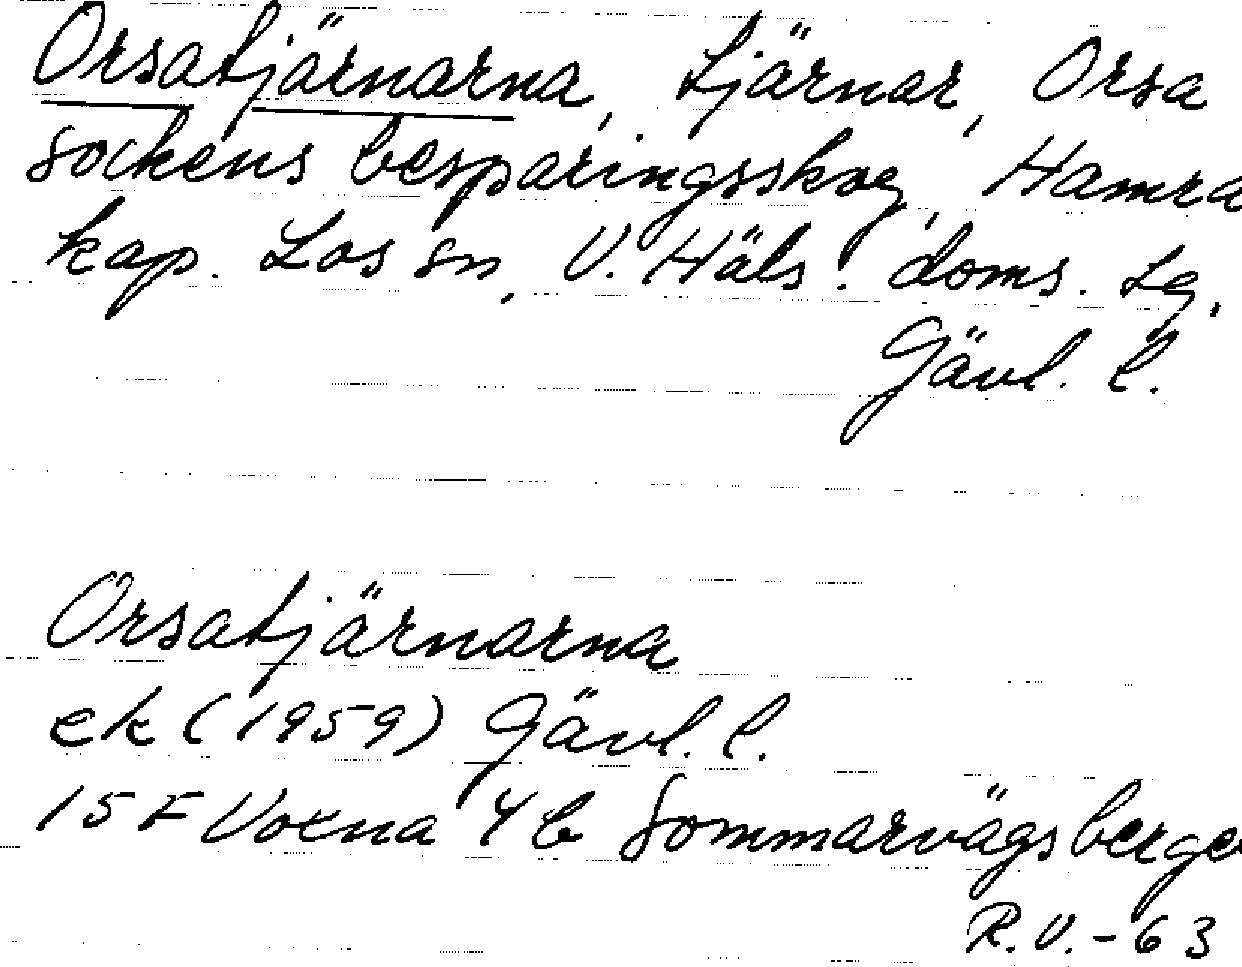 Orsatjärnarna, tjärnar, Orsa
sockens besparingsskog, Hamra
kap. Los sn, V. Häls. doms. lg,
Gävl. l.
Orsatjärnarna
ek (1959) Gävl. l.
15 F Voxna 4 b Sommarvägsberge
R.V.-63